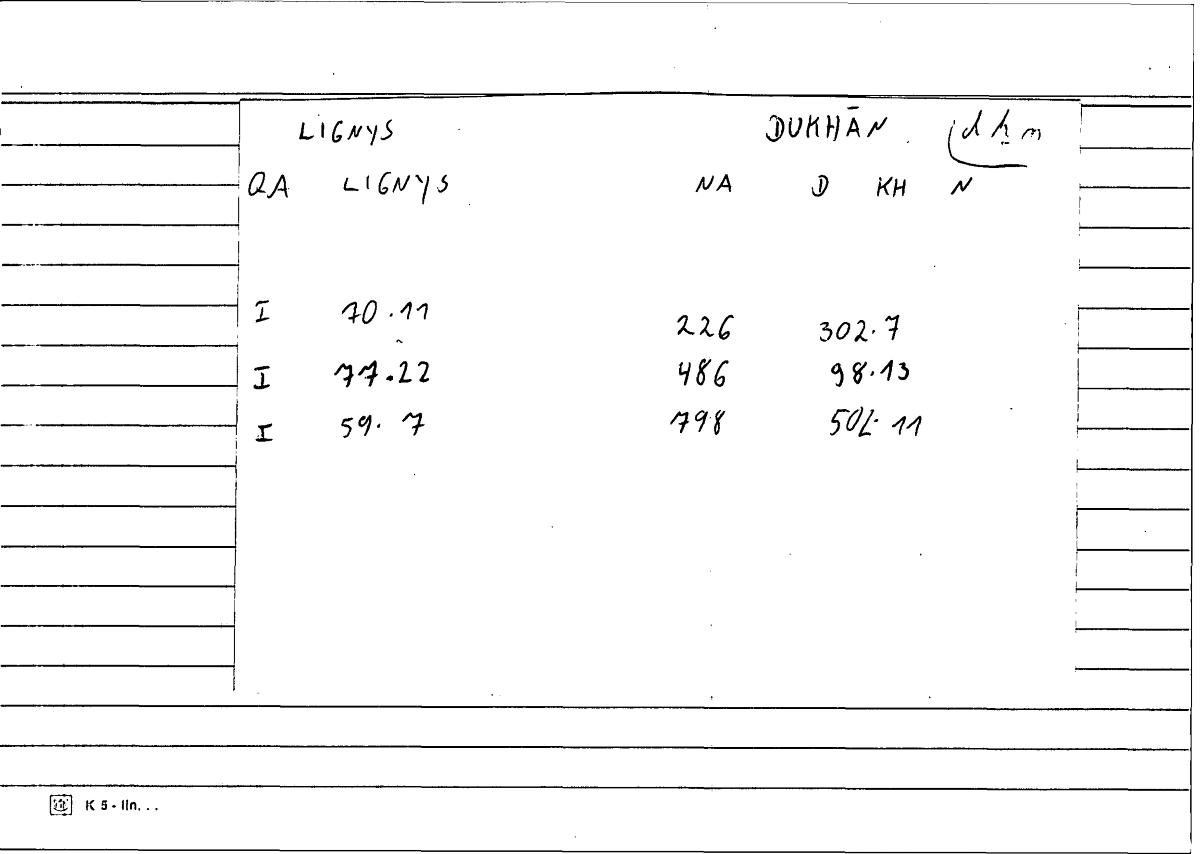 LIGNYS DUKHĀN dḫn
QA LIGNYS NA D KH N
I 70.11 226 302.7
I 77.22 486 98.13
I 59.7 798 502.11
K 5 - lin. . .